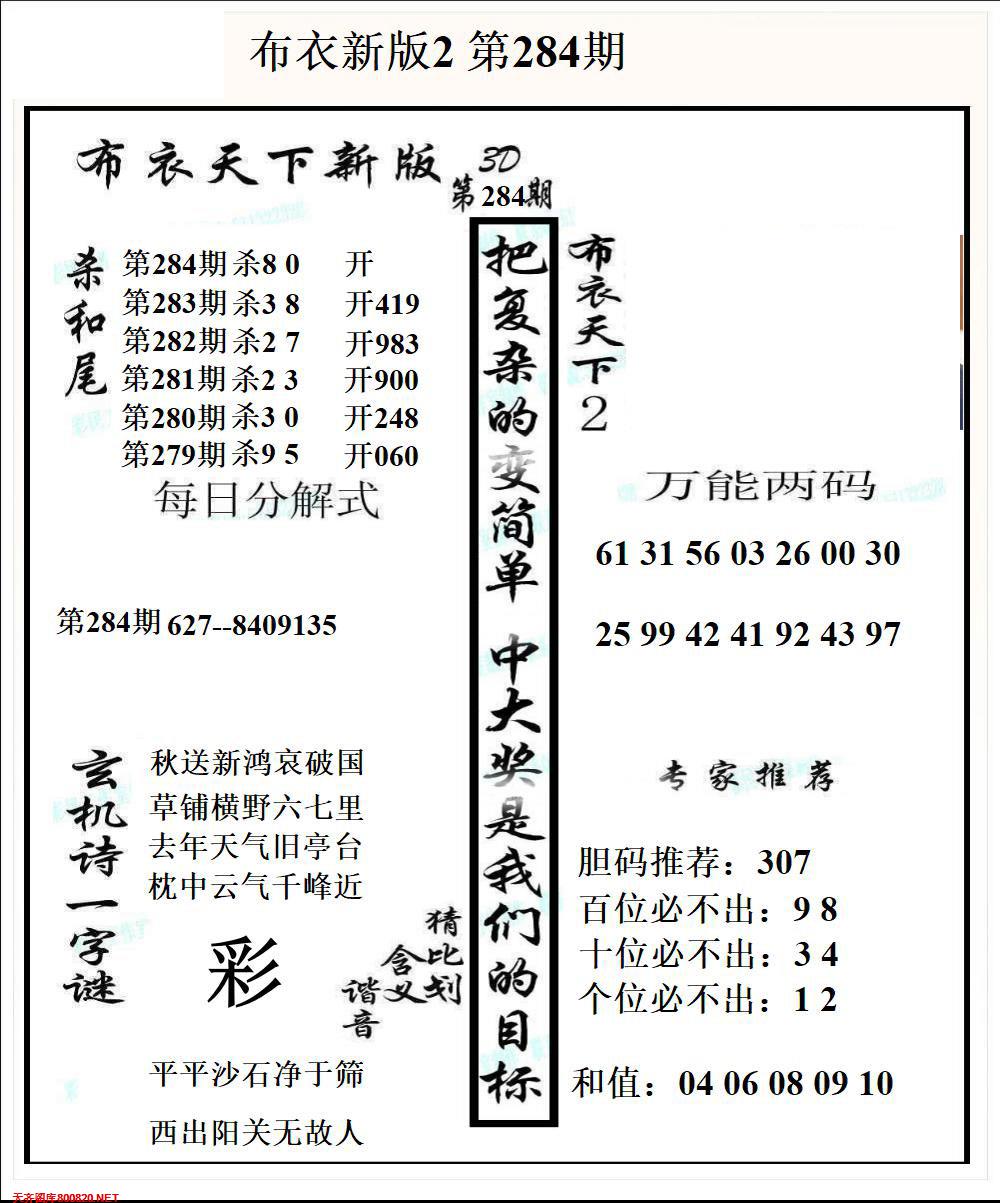 布衣新版2 第284期
布衣天下新版 3D
第284期
杀和尾
第284期 杀8 0 开
第283期 杀3 8 开419
第282期 杀2 7 开983
第281期 杀2 3 开900
第280期 杀3 0 开248
第279期 杀9 5 开060
每日分解式
第284期 627--8409135
玄机诗一字谜
秋送新鸿哀破国
草铺横野六七里
去年天气旧亭台
枕中云气千峰近
彩
猜比划
含义
谐音
平平沙石净于筛
西出阳关无故人
把复杂的变简单 中大奖是我们的目标
布衣天下2
万能两码
61 31 56 03 26 00 30
25 99 42 41 92 43 97
专家推荐
胆码推荐：307
百位必不出：9 8
十位必不出：3 4
个位必不出：1 2
和值：04 06 08 09 10
天齐图库800820.NET